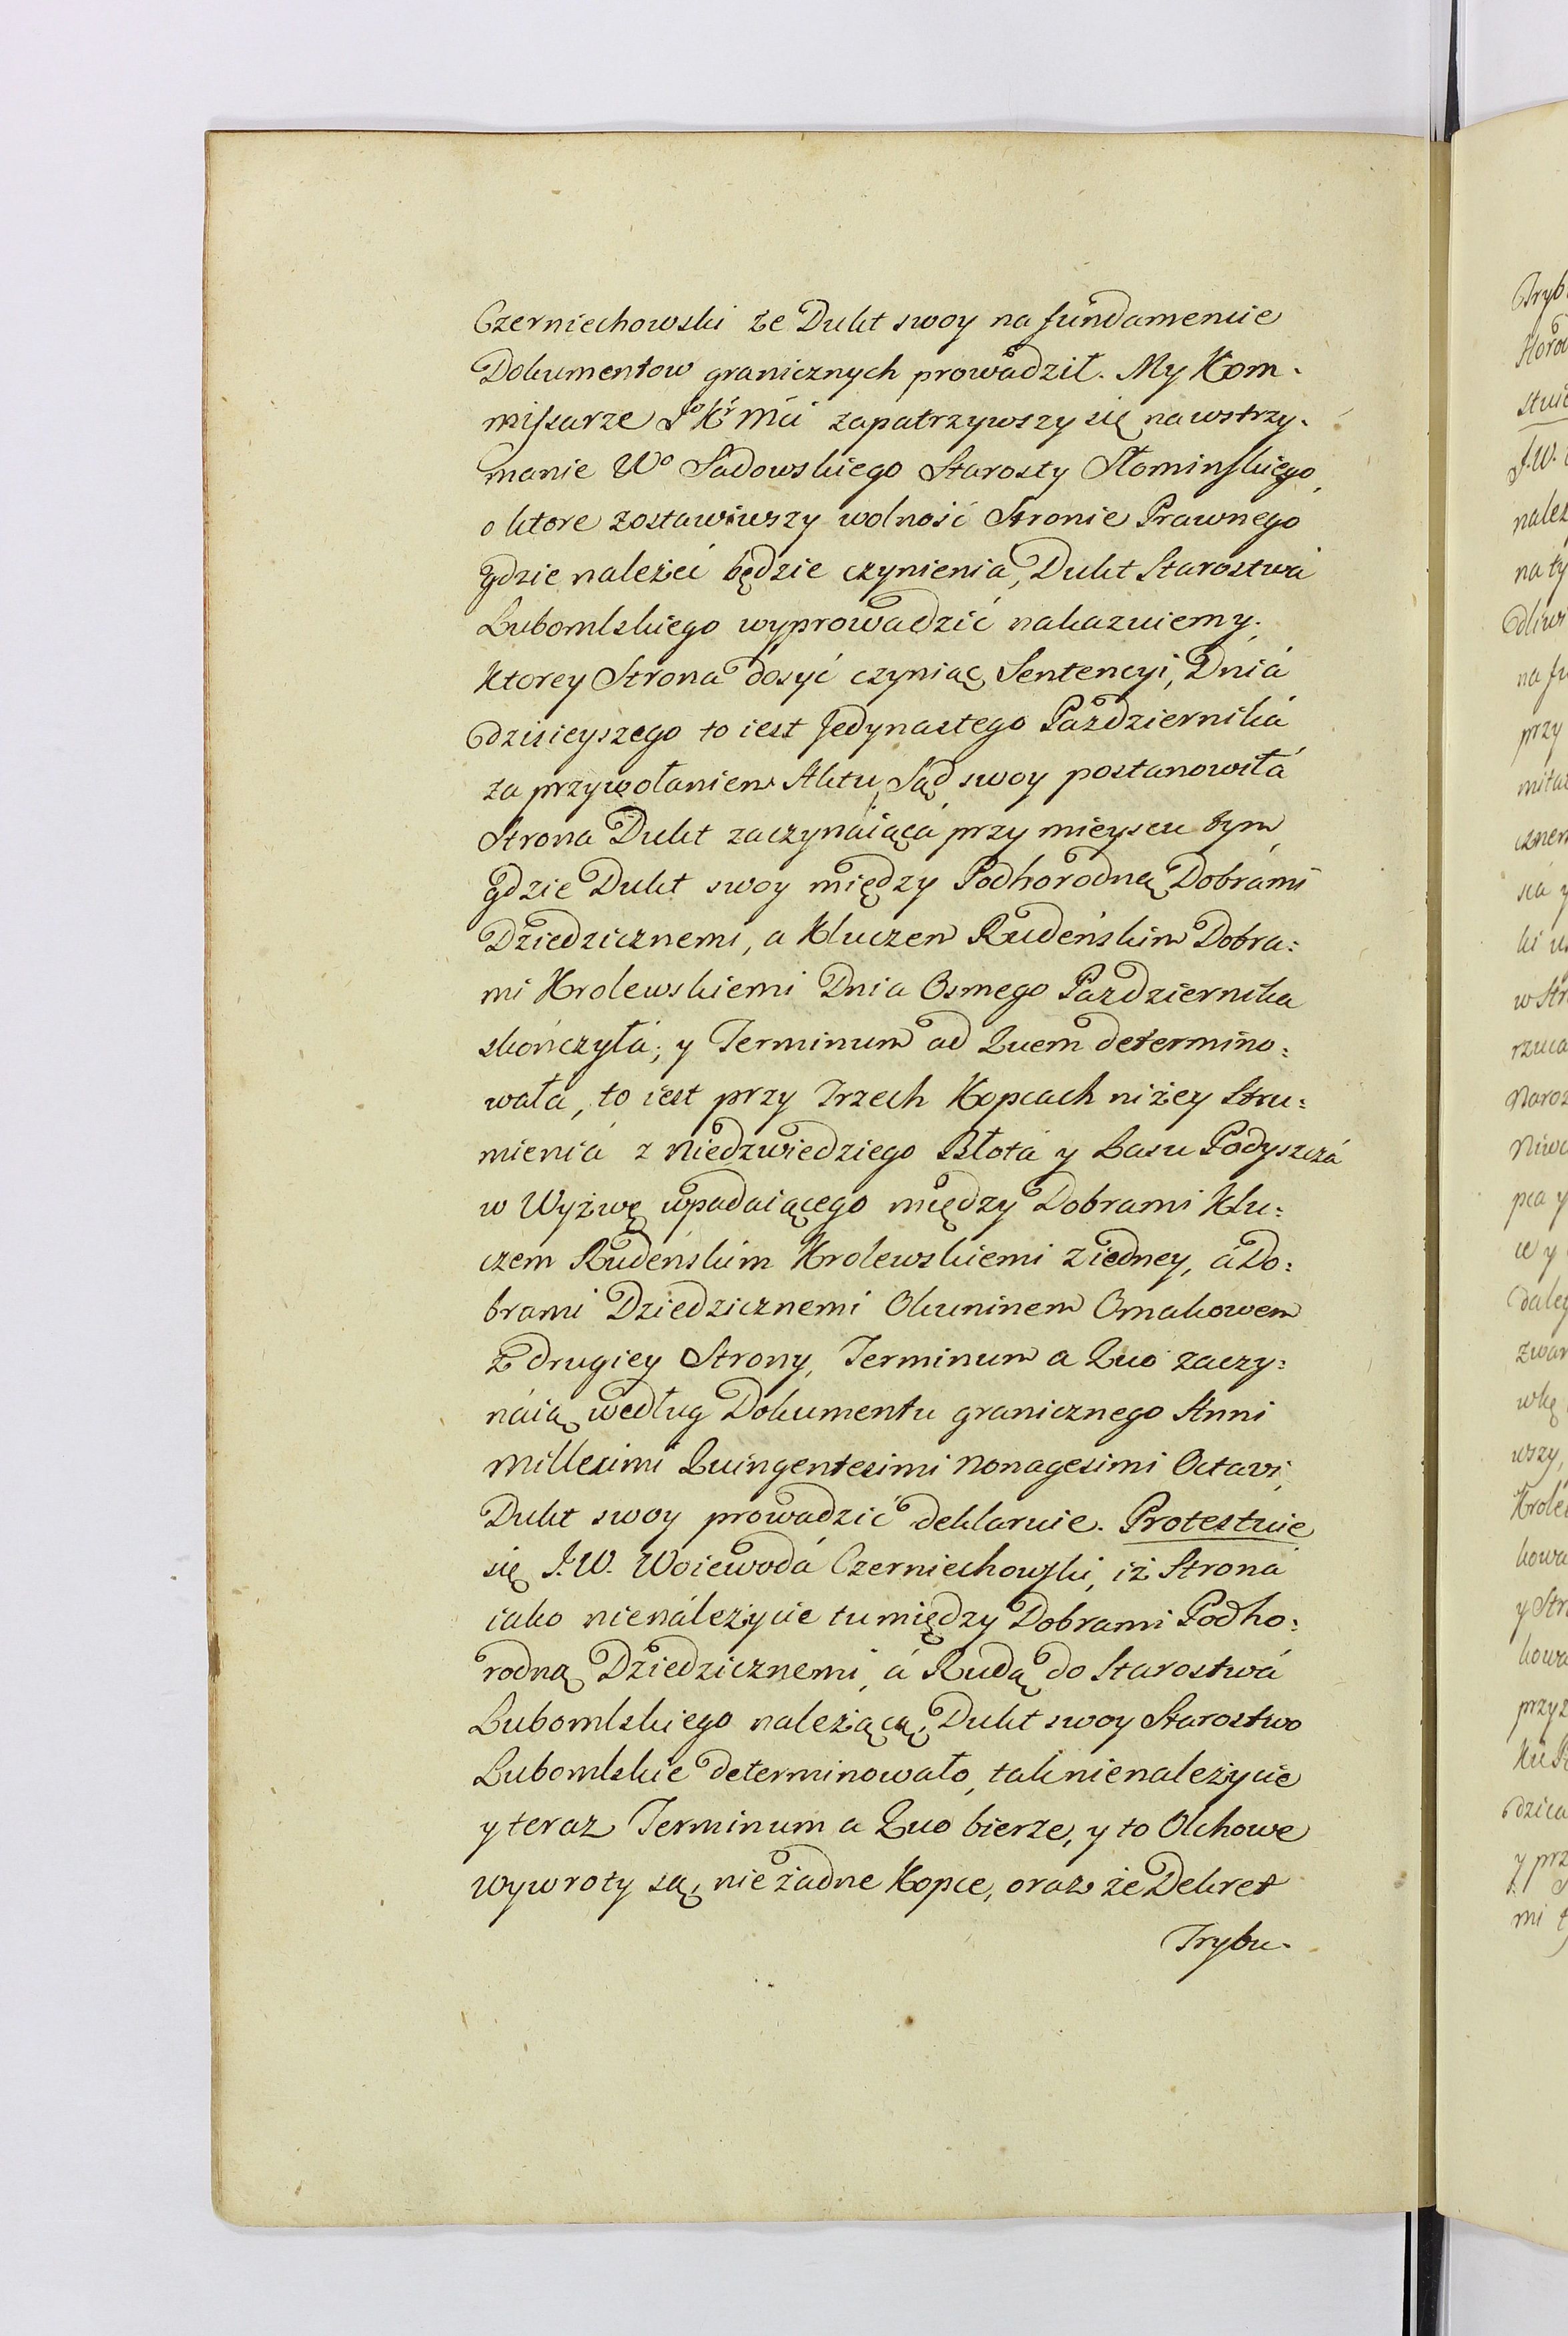 Czerniechowski że Dukt swoy na fundamencie
Dokumentow granicznych prowadził. My Kom-
missarze Jo Kr Mci zapatrzywszy się na wstrzy-
manie Wo Sadowskiego Starosty Słominskiego,
o ktore zostawiwszy wolność Stronie Prawnego
gdzie należeć będzie czynienia, Dukt Starostwá
Lubomlskiego wyprowadzić nakazuiemy.
Ktorey Strona dosyć czyniąc Sentencyi, Dniá
dzisieyszego to iest Jedynastego Października
za przywołaniem Aktu, Sąd swoy postanowiłá
Strona Dukt zaczynaiącá przy mieyscu tym,
gdzie Dukt swoy między Podhorodną Dobrami
Dziedzicznemi, a Kluczem Rudeńskim Dobra:
mi Krolewskiemi Dnia Osmego Pazdziernika
skończyłá; y Terminum ad Quem determino:
wała, to iest przy Trzech Kopcach niżey Stru:
mieniá z Niedzwiedziego Błotá y Lasu Podyszczá
w Wyżwę wpadaiącego między Dobrami Klu:
czem Rudeńskim Krolewskiemi z iedney, á Do:
brami Dziedzicznemi Okuninem Omakowem
z drugiey Strony, Terminum a Quo zaczy:
náią według Dokumentu granicznego Anni
Millesimi Quingentesimi Nonagesimi Octavi,
Dukt swoy prowadzić deklaruie. Protestuie
się J.W. Woiewodá Czerniechowski, iż Stroná
iako nienáleżycie tu między Dobrami Podho:
rodną Dziedzicznemi, á Rudą do Starostwá
Lubomlskiego należącą, Dukt swoy Starostwo
Lubomlskie determinowało, tak nienależycie
y teraz Terminum a Quo bierze, y to Olchowe
wywroty są, nie żadne Kopce, oraz że Dekret
Trybu-